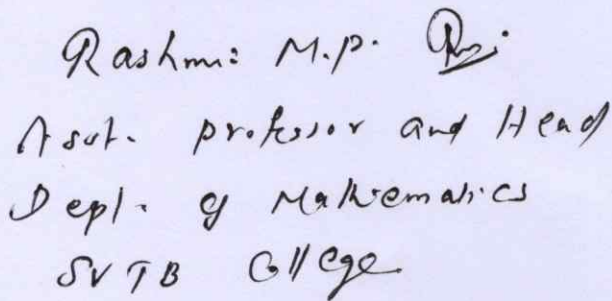 Rashmi M.P.
Asst. professor and Head
Dept. of Mathematics
SVTB College